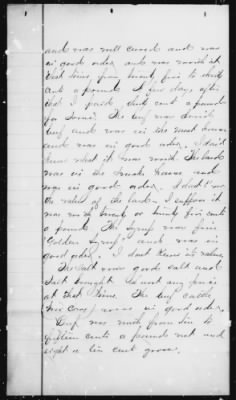 and was well cured and was
in good order, and was worth at
that time, from twenty five to thirty
cents a pound. A few days after
that I paid thirty cents a pound
for some. The beef was dried
beef and was in the smoke house
and was in good order. I don't
know what it was worth. The lard
was in the smoke house and
was in good order. I don't
the value of the lard. I suppose it
was worth twenty or twenty five cents
a pound. The Syrup was fine
"Golden Syrup" and was in
good order. I dont know its value.
The salt was good salt and
salt brought most any price
at that time. The beef cattle
were in good order.
Beef was worth from ten to
fifteen cents a pound net and
eight or ten cent gross.